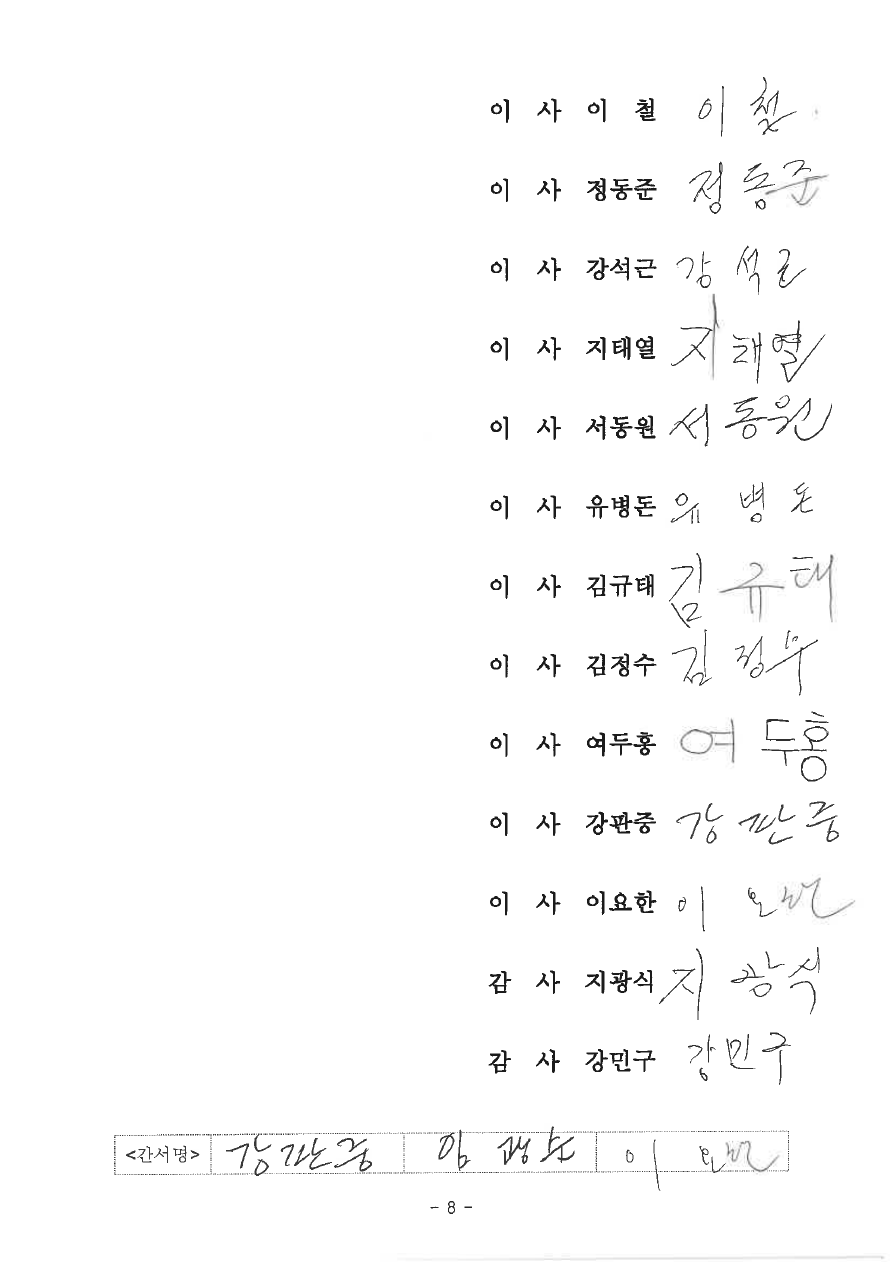 이 사 이 철 이 철
이 사 정동준 정동준
이 사 강석근 강석근
이 사 지태열 지태열
이 사 서동원 서동원
이 사 유병돈 유병돈
이 사 김규태 김규태
이 사 김정수 김정수
이 사 여두홍 여두홍
이 사 강판중 강판중
이 사 이요한 이요한
감 사 지광식 지광식
감 사 강민구 강민구
<간서명> 강판중 이요한
- 8 -